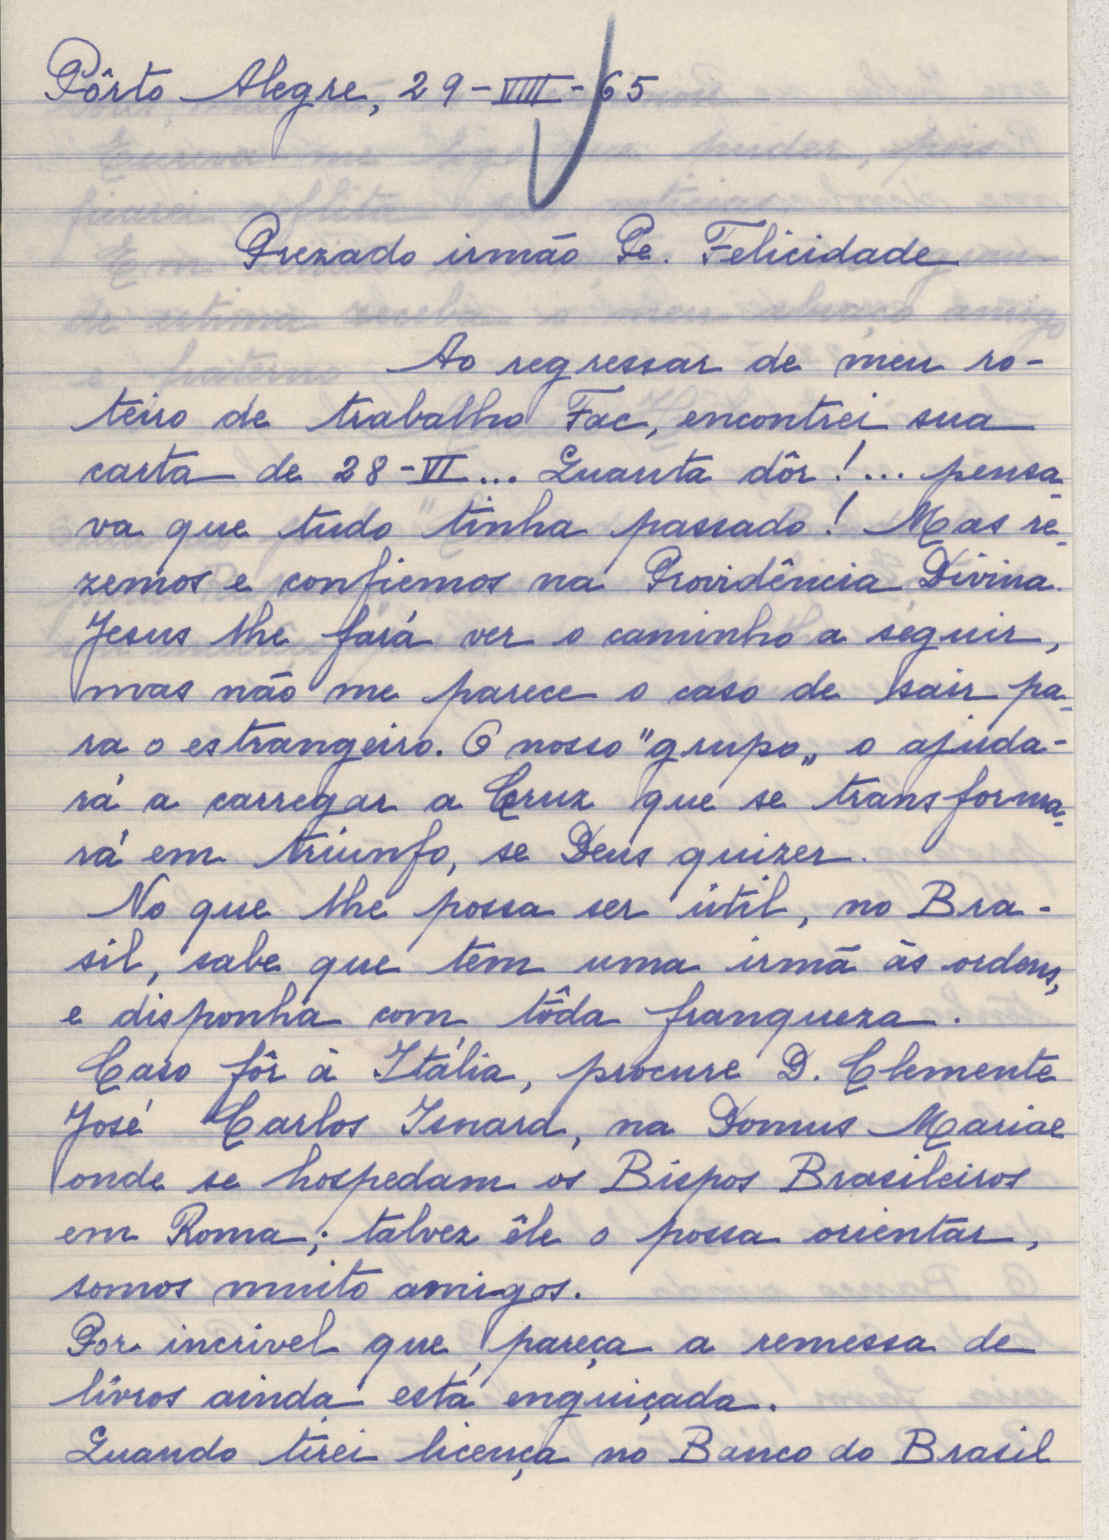 Pôrto Alegre, 29-VIII-65
Prezado irmão Pe. Felicidade
Ao regressar de meu ro-
teiro de trabalho Fac, encontrei sua
carta de 28-VI... Quanta dôr!... pensa-
va que tudo tinha passado! Mas re-
zemos e confiemos na Providência Divina.
Jesus lhe fará ver o caminho a seguir,
mas não me parece o caso de sair pa-
ra o estrangeiro. O nosso "grupo„ o ajuda-
rá a carregar a Cruz que se transforma-
rá em triúnfo, se Deus quizer.
No que lhe possa ser útil, no Bra-
sil, sabe que tem uma irmã às ordens,
e disponha com tôda franqueza.
Caso fôr à Itália, procure D. Clemente
José Carlos Isnard, na Domus Mariae
onde se hospedam os Bispos Brasileiros
em Roma; talvez êle o possa orientar,
somos muito amigos.
Por incrivel que pareça a remessa de
livros ainda está enguiçada.
Quando tirei licença no Banco do Brasil